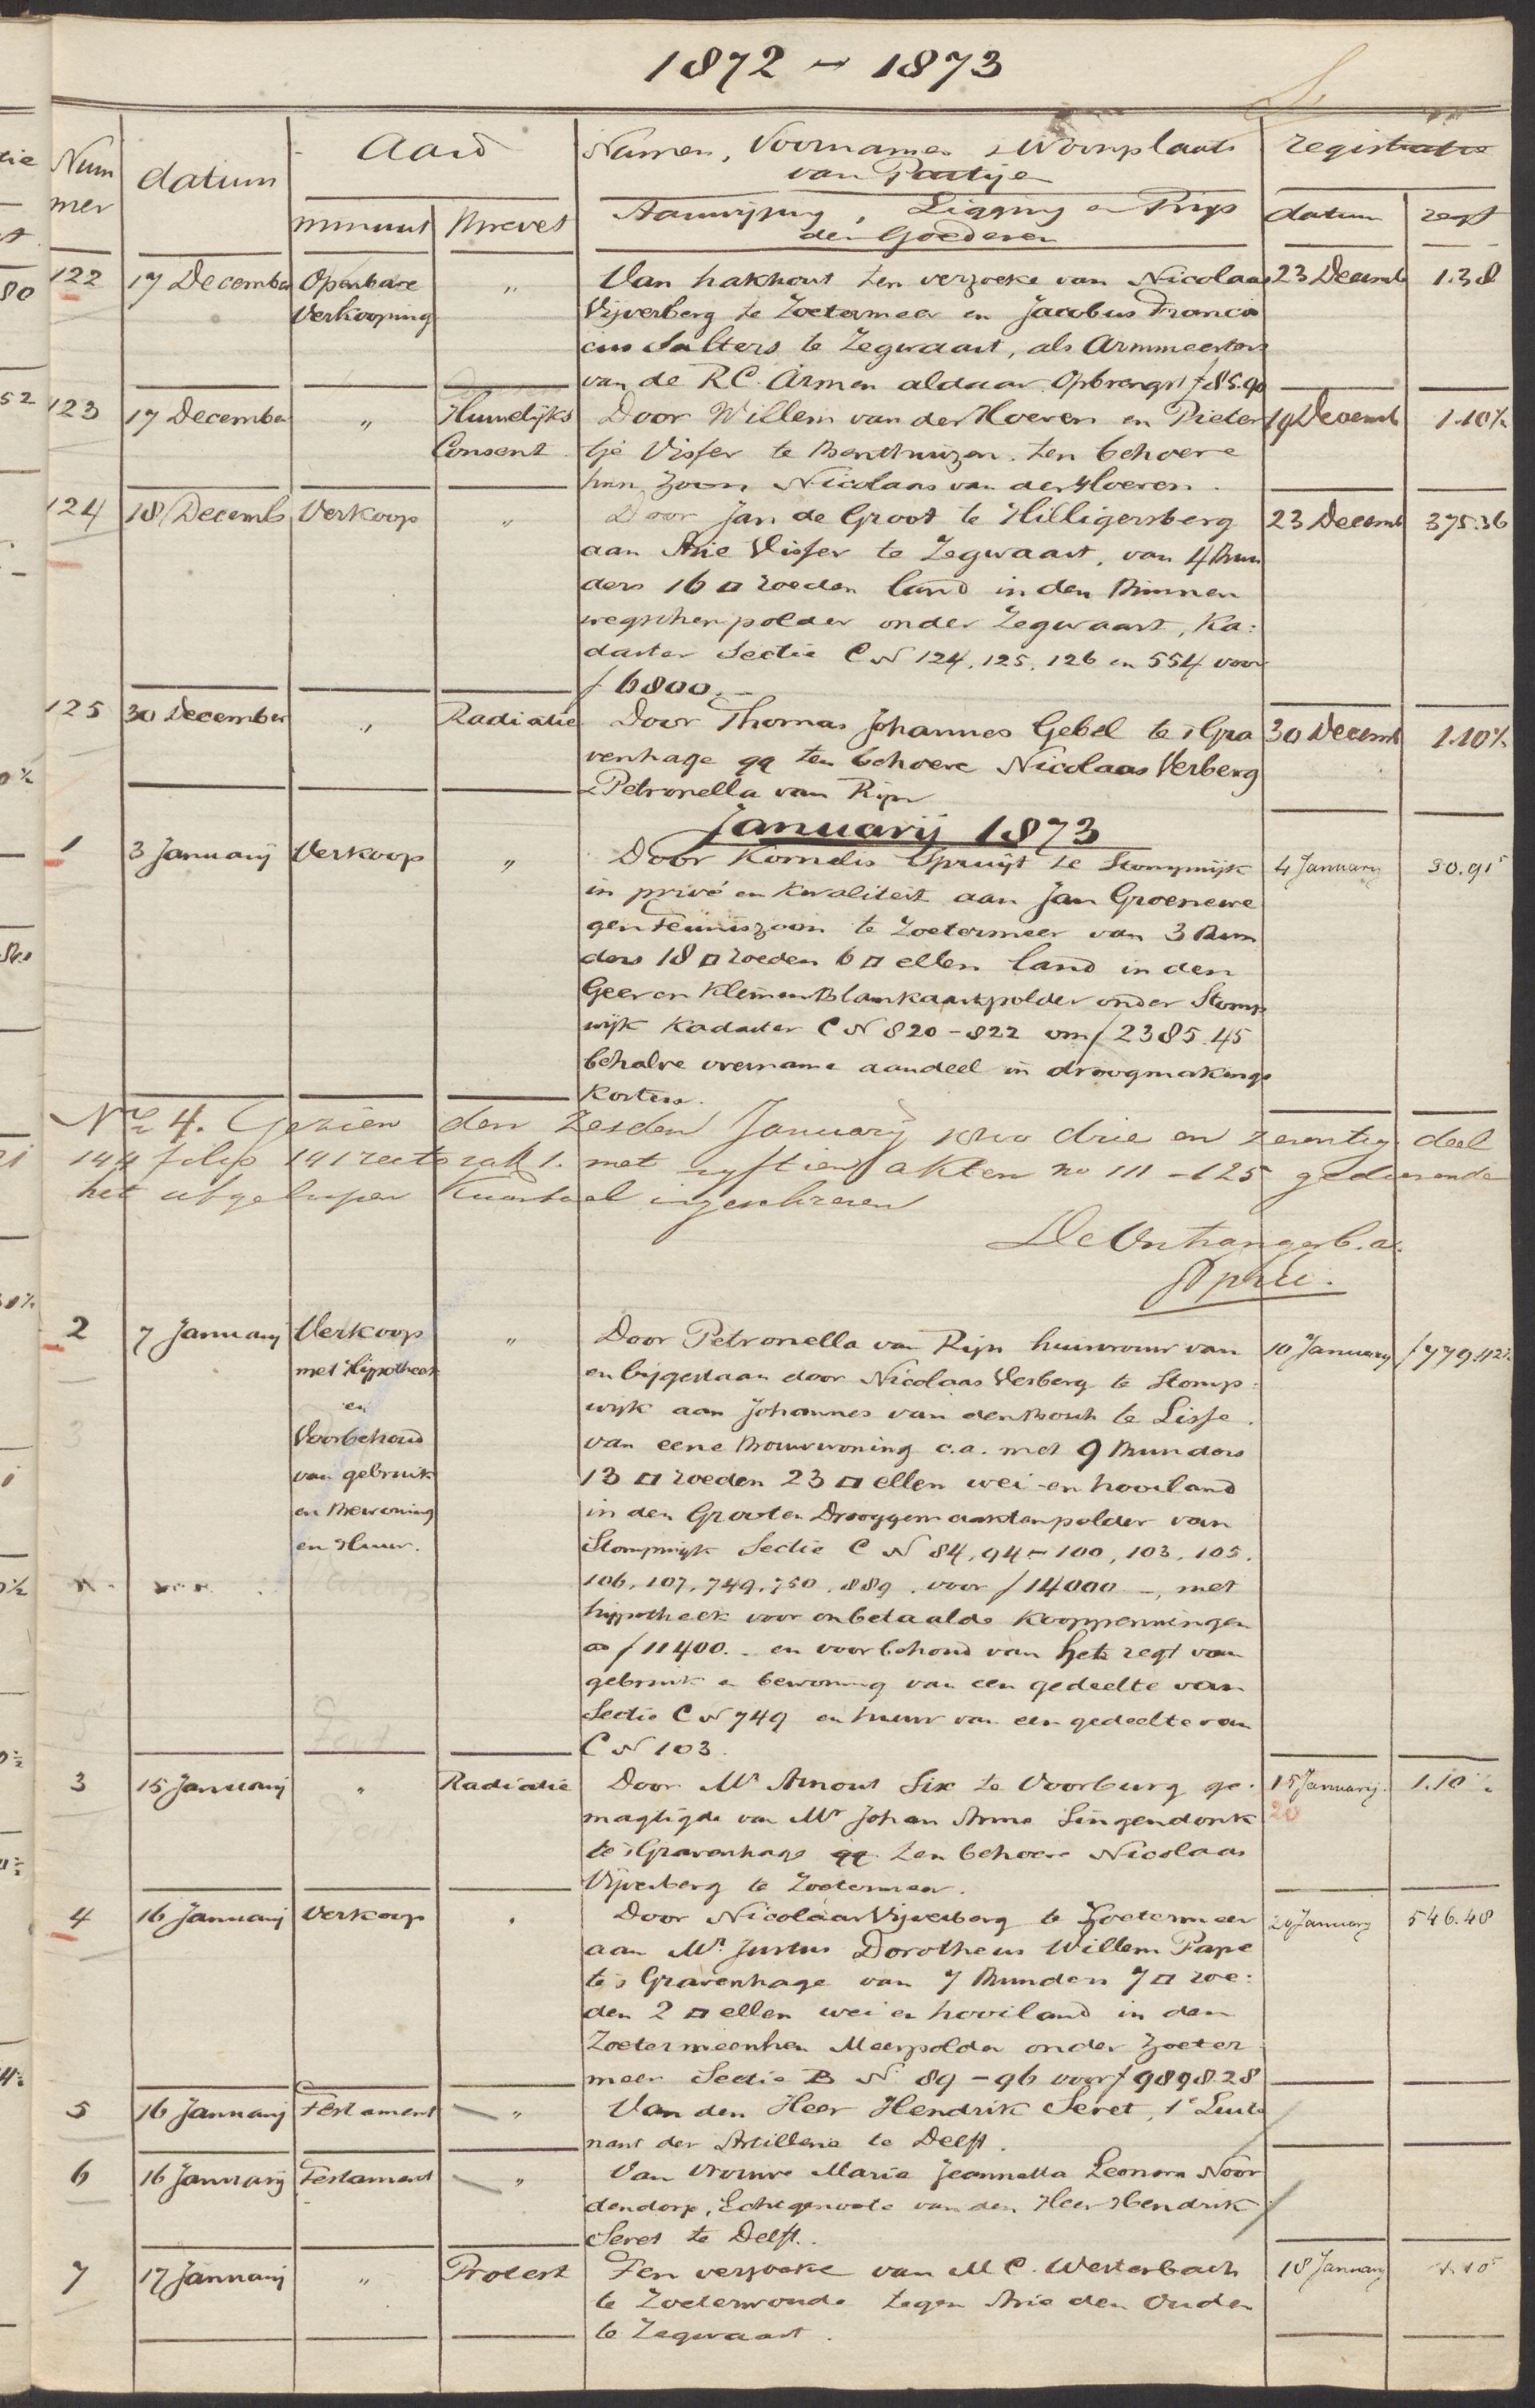 1872 – 1873
Num
mer
datum
Aard
minuut
Brevet
Namen, Voornamen & Woonplaats
van Partije
Aanwijzing, Ligging en Prijs
der Goederen
registratie
datum
regt
122 17 December Openbare " Van hakhout ten verzoeke van Nicolaas 23 Decemb 1.38
Verkooping Vijverberg te Zoetermeer en Jacobus Francis
cus Salters te Zegwaart, als Armmeesters
van de RC. Armen aldaar. Opbrengst f 85.90
123 17 December " Huwelijks Door Willem van der Hoeven en Pieter 19 Decemb 1.10½
Consent tje Visser te Benthuizen. ten behoeve
hun zoon Nicolaas van der Hoeven.
124 18 Decemb Verkoop " Door Jan de Groot te Hilligersberg 23 Decemb 375.36
aan Arie Visser te Zegwaart, van 4 Bun
ders 16 □ roeden land in den Binnen
wegschen polder onder Zegwaart, Ka:
daster Sectie C N 124, 125, 126 en 554 voor
f 6800.–
125 30 December " Radiatie Door Thomas Johannes Gebel te 's Gra 30 Decemb 1.10½
venhage qq ten behoeve Nicolaas Verberg
& Petronella van Rijn
Januarij 1873
1 3 Januarij Verkoop " Door Kornelis Spruijt te Stompwijk 4 January 90.91⁵
in privé en kwaliteit aan Jan Groenewe
gen Teuniszoon te Zoetermeer van 3 Bun
ders 18 □ roeden 6 □ ellen land in den
Geer en Kleinen Blankaartpolder onder Stomp
wijk Kadaster C N 820 – 822 om f 2385.45
behalve overname aandeel in droogmakings
kosten.
No 4. Gezien den Zesden January 18co drie en zeventig deel
14 folio 141 recto vak 1. met vyftien akten no 111 – 125 gedurende
het afgeloopen Kwartaal ingeschreven
De Ontvanger b.a.
2 7 January Verkoop " Door Petronella van Rijn huisvrouw van 10 January f 779.42½
met Hypotheek en bijgestaan door Nicolaas Verberg te Stomp:
en wijk aan Johannes van den Bosch te Lisse.
Voorbehoud van eene Bouwwoning c.a. met 9 Bunders
van gebruik 13 □ roeden 23 □ ellen wei- en hooiland
en Bewoning in den Grooten Drooggemaakten polder van
en Huur. Stompwijk Sectie C N 84, 94 – 100, 103, 105,
106, 107, 749, 750, 889, voor f 14000 –, met
hypotheek voor onbetaalde Kooppenningen
ad f 11400.– en voorbehoud van het regt van
gebruik en bewoning van een gedeelte van
Sectie C N 749 en huur van een gedeelte van
C N 103.
3 15 Januarij " Radiatie Door Mr Arnout Six te Voorburg ge- 15 Januarij 1.10½
magtigde van Mr Johan Anne Singendonk 20
te 's Gravenhage qq ten behoeve Nicolaas
Vijverberg te Zoetermeer.
4 16 Januarij Verkoop " Door Nicolaas Vijverberg te Zoetermeer 20 January 546.48
aan Mr. Justus Dorotheus Willem Pape
te 's Gravenhage van 7 Bunders 7 □ roe:
den 2 □ ellen wei en hooiland in den
Zoetermeerschen Meerpolder onder Zoeter
meer Sectie B N 89 – 96 voor f 9898.28
5 16 Januarij Testament " Van den Heer Hendrik Seret, 1e Luite
nant der Artillerie te Delft.
6 16 Januarij Testament " Van Vrouwe Maria Jeannetta Leonora Noor
dendorp, Echtgenoote van den Heer Hendrik
Seret te Delft.
7 17 Januarij " Protest Ten verzoeke van M C. Westerbach 18 January 1.10⁵
te Zoeterwoude tegen Arie den Ouden
te Zegwaart.